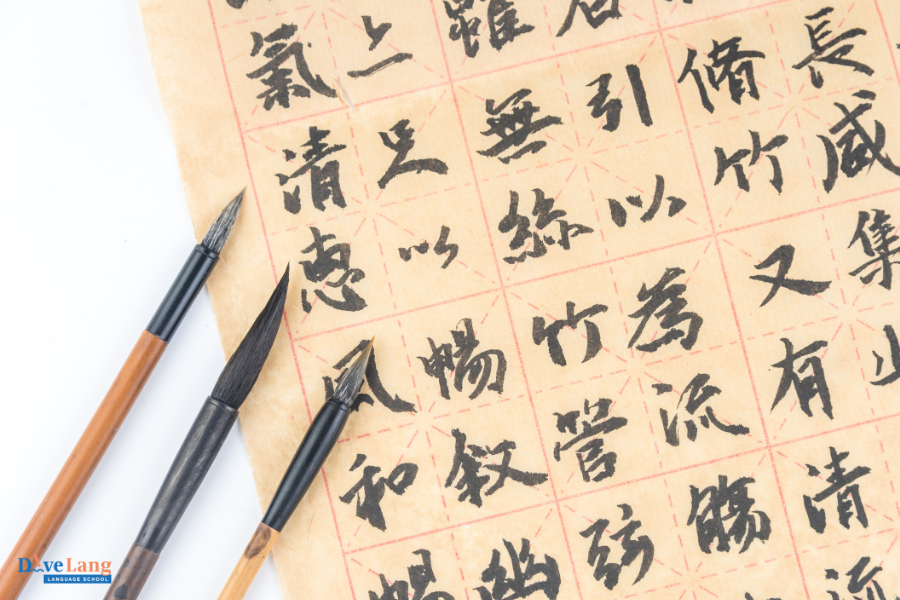 長咸集
脩竹又有清流
引以為流觴
雖無絲竹管弦
足以暢敘幽
氣清惠風和暢
DiveLang
LANGUAGE SCHOOL